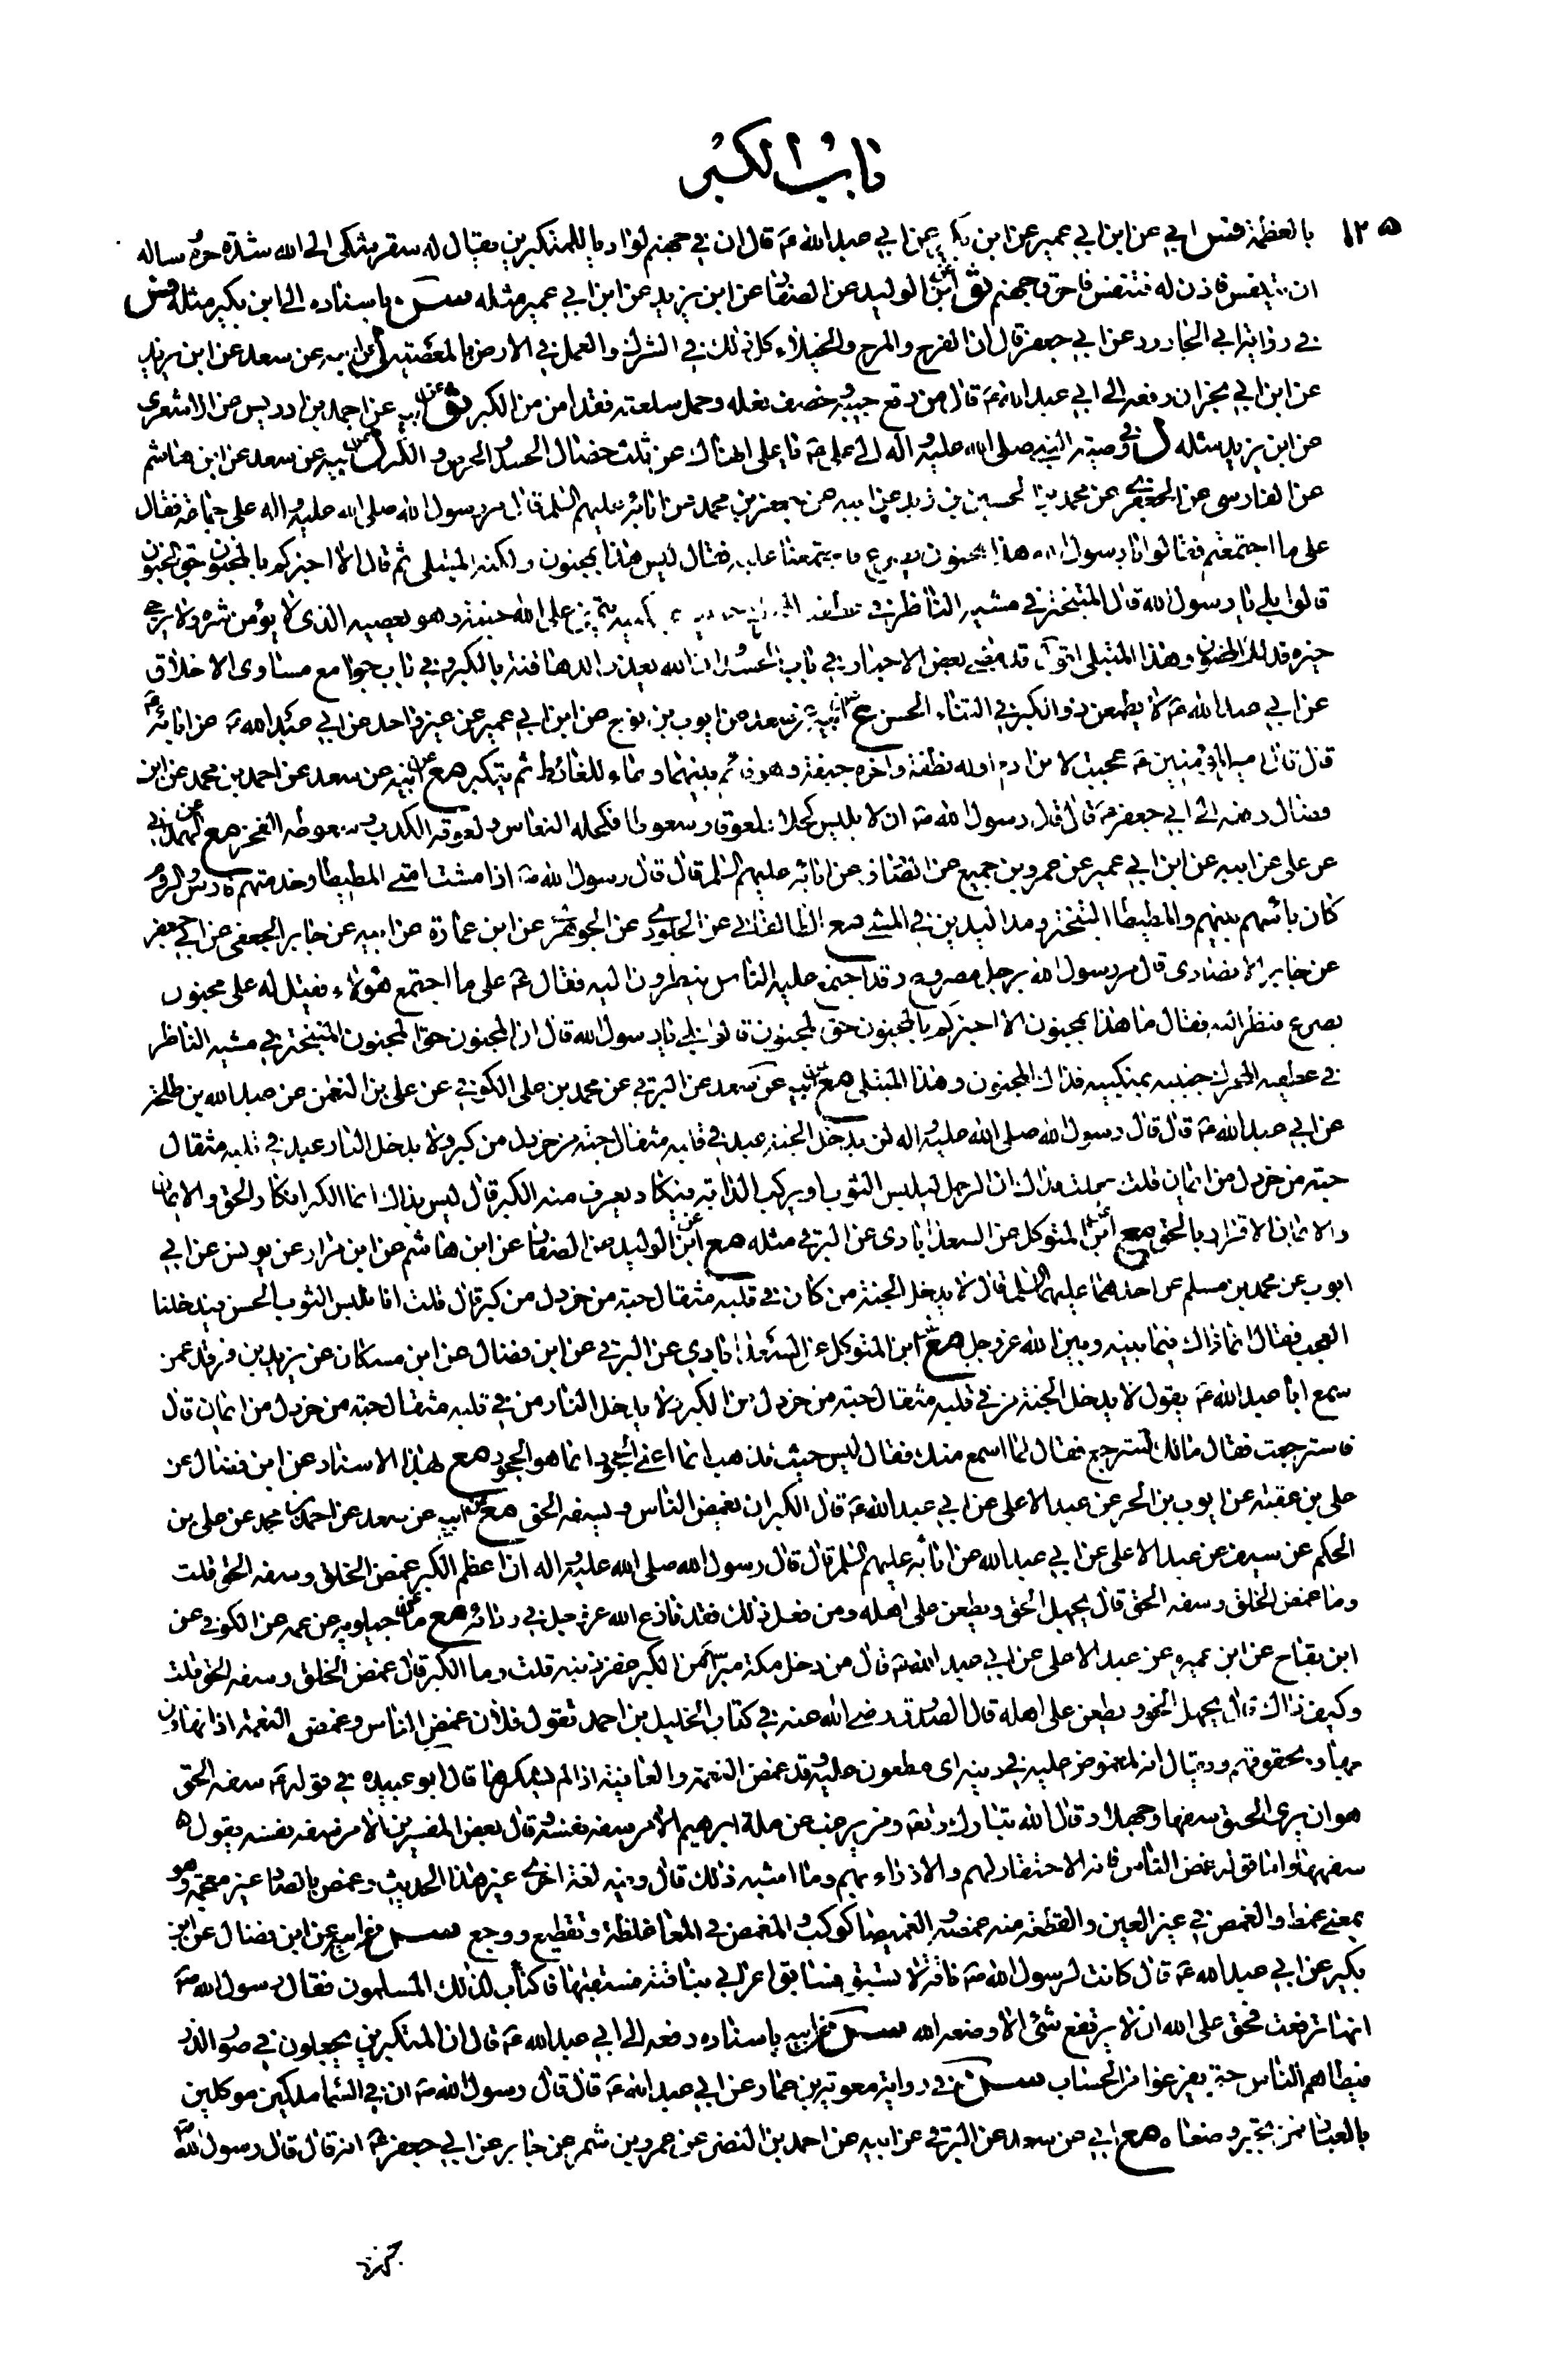 باب الكبر
١٢٥ بالعظمة فس ابي عن ابن ابي عمير عن ابن بكير عن ابي عبد الله ع قال ان في جهنم لواديا للمتكبرين يقال له سقر شكى الى الله شدة حره وساله
ان يتنفس فاذن له فتنفس فاحرق جهنم ثو ابن الوليد عن الصفار عن ابن يزيد عن ابن ابي عمير مثله سن باسناده الى ابن بكير مثله فس
في رواية ابي الجارود عن ابي جعفر قال ان الفرح والمرح والخيلاء كل ذلك في الشرك والعمل في الارض بالمعصية ل ابيه عن سعد عن ابن يزيد
عن ابن ابي نجران رفعه الى ابي عبد الله ع قال من رقع جيبه وخصف نعله وحمل سلعته فقد امن من الكبر ثو عن ابيه عن احمد بن ادريس عن الاشعري
عن ابن يزيد مثله ل في وصية النبي صلى الله عليه واله الى علي ع يا علي انهاك عن ثلث خصال الحسد والحرص والكبر ل ابيه عن سعد عن ابن هاشم
عن الفارسي عن الجعفري عن محمد بن الحسين بن زيد عن ابيه عن جعفر بن محمد عن ابائه عليهم السلم قال مر رسول الله صلى الله عليه واله على جماعة فقال
على ما اجتمعتم فقالوا يا رسول الله هذا مجنون يصرع فاجتمعنا عليه فقال ليس هذا بمجنون ولكنه المبتلى ثم قال الا اخبركم بالمجنون حق المجنون
قالوا بلى يا رسول الله قال المتبختر في مشيه الناظر في عطفيه المحرك جنبيه بمنكبيه يتمنى على الله جنته وهو يعصيه الذي لا يؤمن شره ولا يرجى
خيره فذلك المجنون وهذا المبتلى اقول قد مضى بعض الاخبار في باب ان الله يعذر الدهاقنة بالكبر وفي باب جوامع مساوي الاخلاق
عن ابي عبد الله ع لا يطمعن ذو الكبر في الثناء الحسن ع ابيه عن سعد عن ايوب بن نوح عن ابن ابي عمير عن غير واحد عن ابي عبد الله ع عن ابائه ع
قال قال امير المؤمنين ع عجبت لابن ادم اوله نطفة واخره جيفة وهو قائم بينهما وعاء للغائط ثم يتكبر مع ابيه عن سعد عن احمد بن محمد عن ابن
فضال رفعه الى ابي جعفر ع قال قال رسول الله ص ان لابليس كحلا ولعوقا وسعوطا فكحله النعاس ولعوقه الكذب وسعوطه الفخر مع عن الهمداني
عن علي عن ابيه عن ابن ابي عمير عن عمرو بن جميع عن الصادق عن ابائه عليهم السلم قال قال رسول الله ص اذا مشت امتي المطيطا وخدمتهم فارس والروم
كان باسهم بينهم والمطيطا التبختر ومد اليدين في المشي مع الطالقاني عن الجلودي عن الجوهري عن ابن عمارة عن ابيه عن جابر الجعفي عن ابي جعفر
عن جابر الانصاري قال مر رسول الله برجل مصروع وقد اجتمع عليه الناس ينظرون اليه فقال ع على ما اجتمع هؤلاء فقيل له على مجنون
يصرع فنظر اليه فقال ما هذا بمجنون الا اخبركم بالمجنون حق المجنون قالوا بلى يا رسول الله قال ان المجنون حق المجنون المتبختر في مشيه الناظر
في عطفيه المحرك جنبيه بمنكبيه فذاك المجنون وهذا المبتلى مع ابيه عن سعد عن البرقي عن محمد بن علي الكوفي عن علي بن النعمن عن عبد الله بن طلحة
عن ابي عبد الله ع قال قال رسول الله صلى الله عليه واله لن يدخل الجنة عبد في قلبه مثقال حبة من خردل من كبر ولا يدخل النار عبد في قلبه مثقال
حبة من خردل من ايمان قلت جعلت فداك ان الرجل ليلبس الثوب او يركب الدابة فيكاد يعرف منه الكبر قال ليس بذاك انما الكبر انكار الحق والايمان
والايمان الاقرار بالحق مع ابن المتوكل عن السعدابادي عن البرقي مثله مع ابن الوليد عن الصفار عن ابن هاشم عن ابن مرار عن يونس عن ابي
ايوب عن محمد بن مسلم عن احدهما عليهما السلم قال لا يدخل الجنة من كان في قلبه مثقال حبة من خردل من كبر قال قلت انا نلبس الثوب الحسن فيدخلنا
العجب فقال انما ذاك فيما بينه وبين الله عز وجل مع ابن المتوكل عن السعدابادي عن البرقي عن ابن فضال عن ابن مسكان عن يزيد بن فرقد عمن
سمع ابا عبد الله ع يقول لا يدخل الجنة من في قلبه مثقال حبة من خردل من الكبر ولا يدخل النار من في قلبه مثقال حبة من خردل من ايمان قال
فاسترجعت فقال مالك تسترجع فقال لما اسمع منك فقال ليس حيث تذهب انما اعني الجحود انما هو الجحود مع بهذا الاسناد عن ابن فضال عن
علي بن عقبة عن ايوب بن الحر عن عبد الاعلى عن ابي عبد الله ع قال الكبر ان يغمص الناس ويسفه الحق مع ابيه عن سعد عن احمد بن محمد عن علي بن
الحكم عن سيف عن عبد الاعلى عن ابي عبد الله عن ابائه عليهم السلم قال قال رسول الله صلى الله عليه واله ان اعظم الكبر غمص الخلق وسفه الحق قلت
وما غمص الخلق وسفه الحق قال يجهل الحق ويطعن على اهله ومن فعل ذلك فقد نازع الله عز وجل في ردائه مع ماجيلويه عن عمه عن الكوفي عن
ابن بقاح عن ابن عميرة عن عبد الاعلى عن ابي عبد الله ع قال من دخل مكة مبرأ من الكبر غفر ذنبه قلت وما الكبر قال غمص الخلق وسفه الحق قلت
وكيف ذاك قال يجهل الحق ويطعن على اهله قال الصدوق رضي الله عنه في كتاب الخليل بن احمد تقول فلان غمص الناس وغمص النعمة اذا تهاون
بها وبحقوقهم ويقال انه لمغموص عليه في دينه اى مطعون عليه وقد غمص النعمة والعافية اذا لم يشكرها قال ابو عبيده في قوله ع سفه الحق
هو ان يرى الحق سفها وجهلا وقال الله تبارك وتعالى ومن يرغب عن ملة ابرهيم الا من سفه نفسه وقال بعض المفسرين الا من سفه نفسه يقول
سفهها واما قوله غمص الناس فانه الاحتقار لهم والازراء بهم وما اشبه ذلك قال وفيه لغة اخرى غير هذا الحديث وغمص بالصاد غير معجمة وهو
بمعنى غمط والغمص في عين العين والقطعة منه غمصة والغميصا كوكب والمغمص في المعا غلظة وتقطيع ووجع سن ابيه عن ابن فضال عن ابن
بكير عن ابي عبد الله ع قال كانت لرسول الله ص ناقة لا تسبق فسابق اعرابي بناقته فسبقتها فاكتأب لذلك المسلمون فقال رسول الله ص
انها ترفعت فحق على الله ان لا يرتفع شئ الا وضعه الله سن ابيه باسناده رفعه الى ابي عبد الله ع قال ان المتكبرين يجعلون في صور الذر
فيطاهم الناس حتى يفرغوا من الحساب سن في رواية معوية بن عمار عن ابي عبد الله ع قال قال رسول الله ص ان في السماء ملكين موكلين
بالعباد فمن تجبر وضعاه مع ابي عن سعد عن البرقي عن ابيه عن احمد بن النضر عن عمرو بن شمر عن جابر عن ابي جعفر ع انه قال قال رسول الله ص